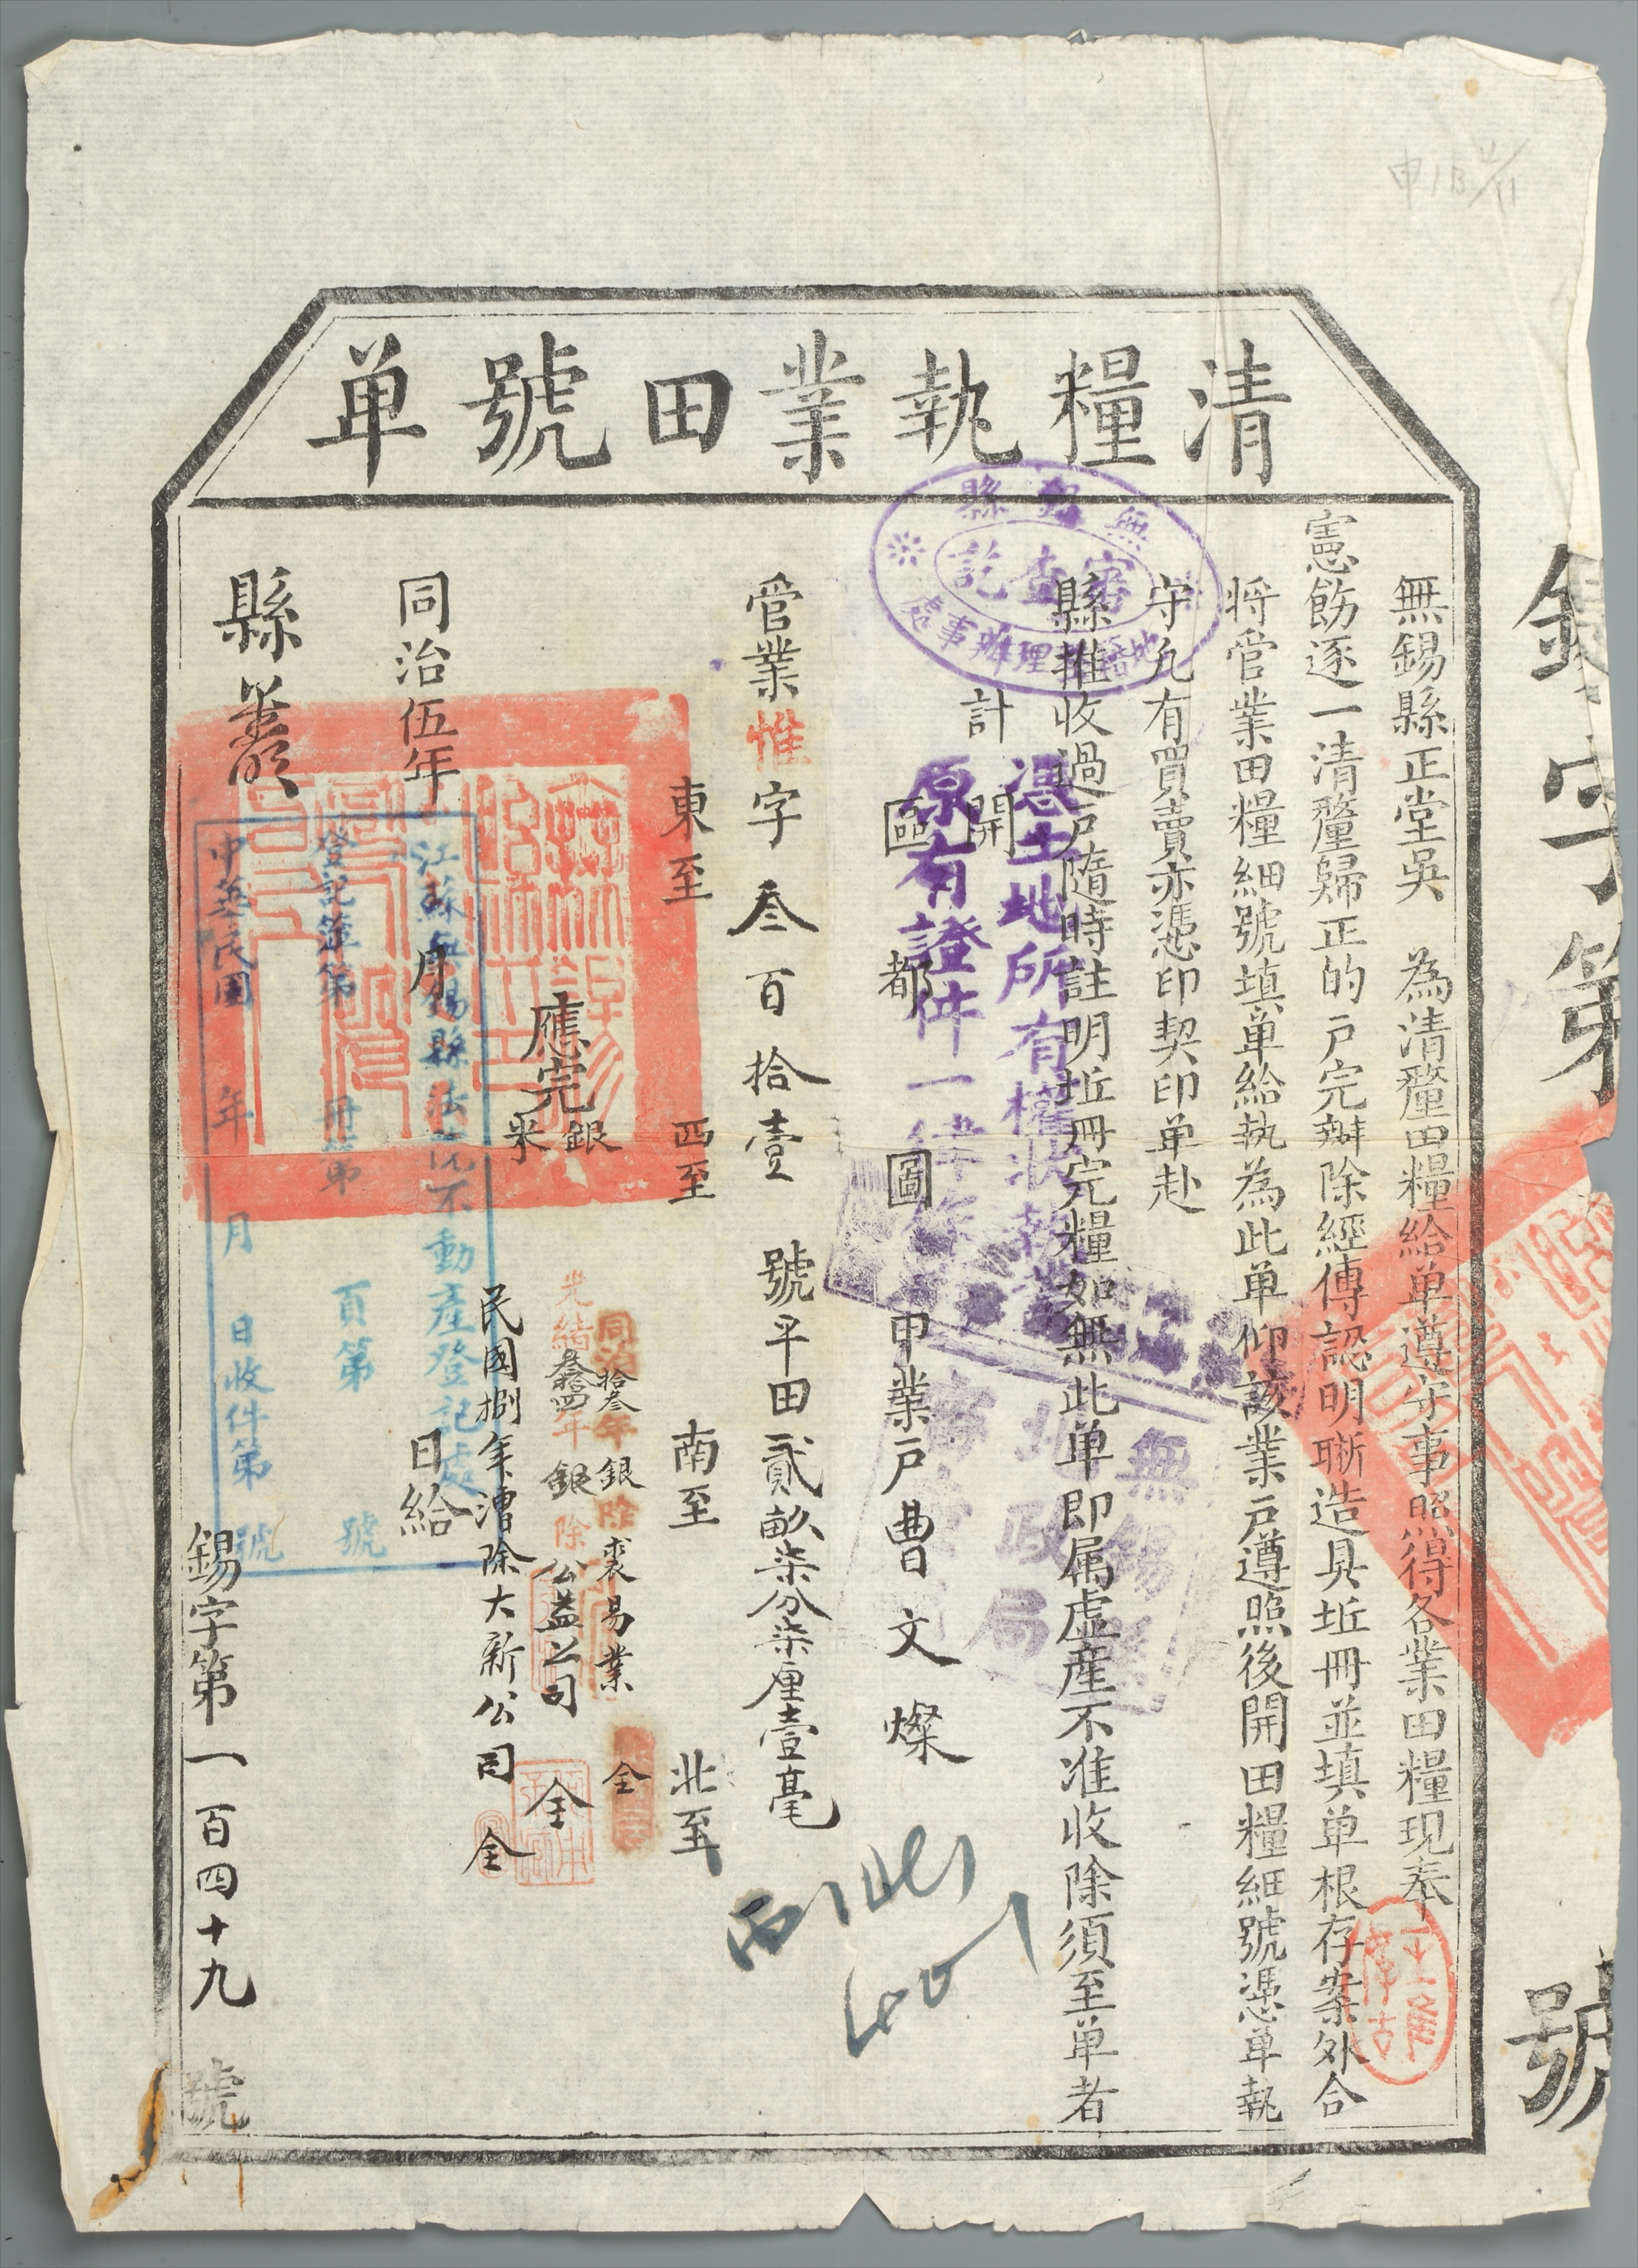 清糧執業田號单
字第 號
無錫縣正堂吳 為清釐田糧給单遵守事照得各業田糧現奉
憲飭逐一清釐歸正的戸完辦除經傳認明晰造具坵冊並填单根存案外合
將管業田糧細號填单給執為此单仰該業戸遵照後開田糧細號憑单執
守凢有買賣亦憑印契印单赴
縣推收過戸隨時註明坵冊完糧如無此单即属虛産不准收除須至单者
計開
區 都 圖 甲業戸曹文燦
管業惟字叁百拾壹 號平田貳畝柒分柒厘壹毫
東至 西至 南至 北至
應完
銀
米
同治拾叁年銀除裘易業 仝
光緒叁拾四年銀除公益公司 仝
民國捌年漕除大新公司 仝
同治伍年 月 日給
縣
錫字第一百四十九號
無錫縣
審查訖
地 理辦事處
憑土地所有權狀執業
原有證件一律作
無錫縣
地政局
江蘇無錫縣法院不動產登記處
登記簿第 冊第 頁第 號
中華民國 年 月 日收件第 號